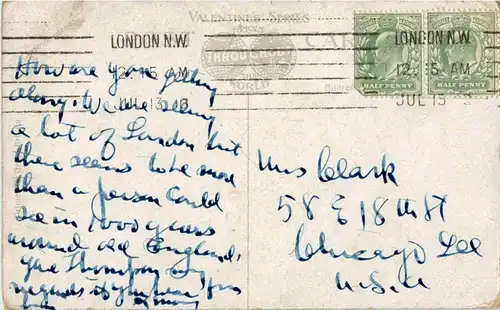 VALENTINE'S SERIES
FAMOUS
THROUGHOUT
WORLD
CARD
LONDON N.W.
12.15 AM
JUL 13
LONDON N.W.
12.15 AM
JUL 13
HALF PENNY
HALF PENNY
How are you getting
along. We are seeing
a lot of London but
there seems to be more
than a person could
see in 1000 years
around old England.
regards
Mrs Clark
58 E 18th St
Chicago Ill
U.S.A